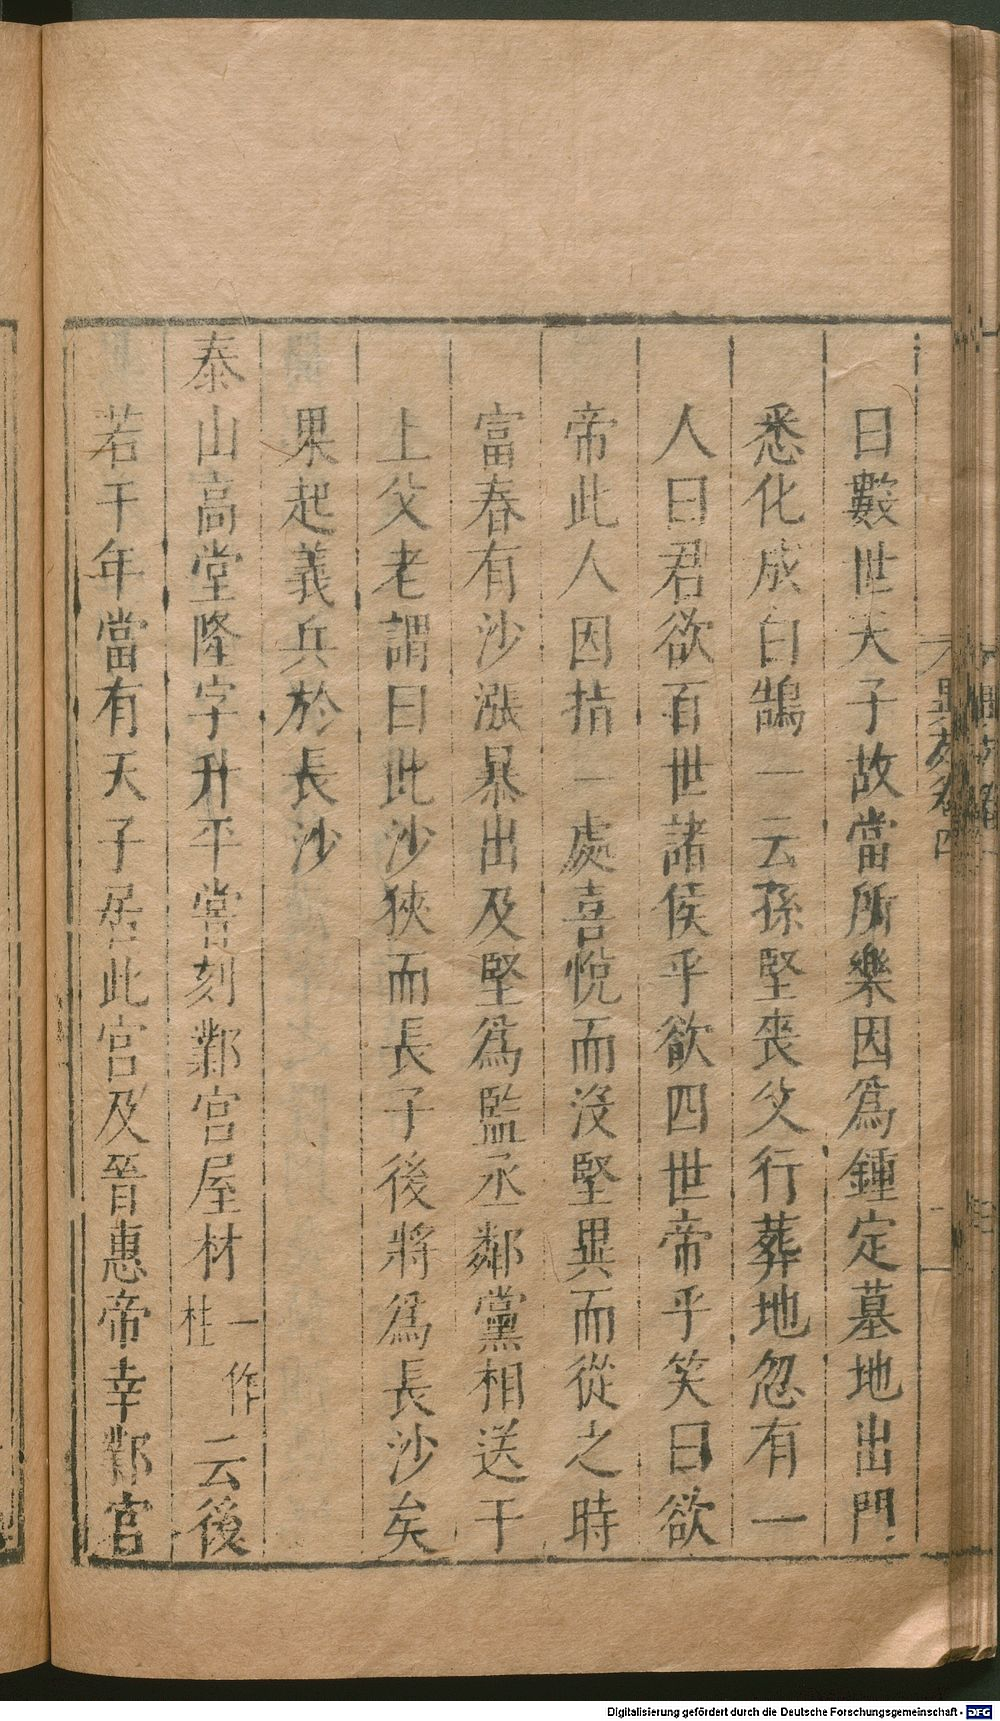 曰數世天子故當所樂因爲鍾定墓地出門
悉化成白鵠一云孫堅喪父行葬地忽有一
人曰君欲百世諸侯乎欲四世帝乎笑曰欲
帝此人因指一處喜悅而沒堅異而從之時
富春有沙漲暴出及堅爲監丞鄰黨相送于
上父老謂曰此沙狹而長子後將爲長沙矣
果起義兵於長沙
泰山高堂隆字升平嘗刻鄴宮屋材一作柱云後
若干年當有天子居此宮及晉惠帝幸鄴宮
異苑卷四
Digitalisierung gefördert durch die Deutsche Forschungsgemeinschaft - DFG